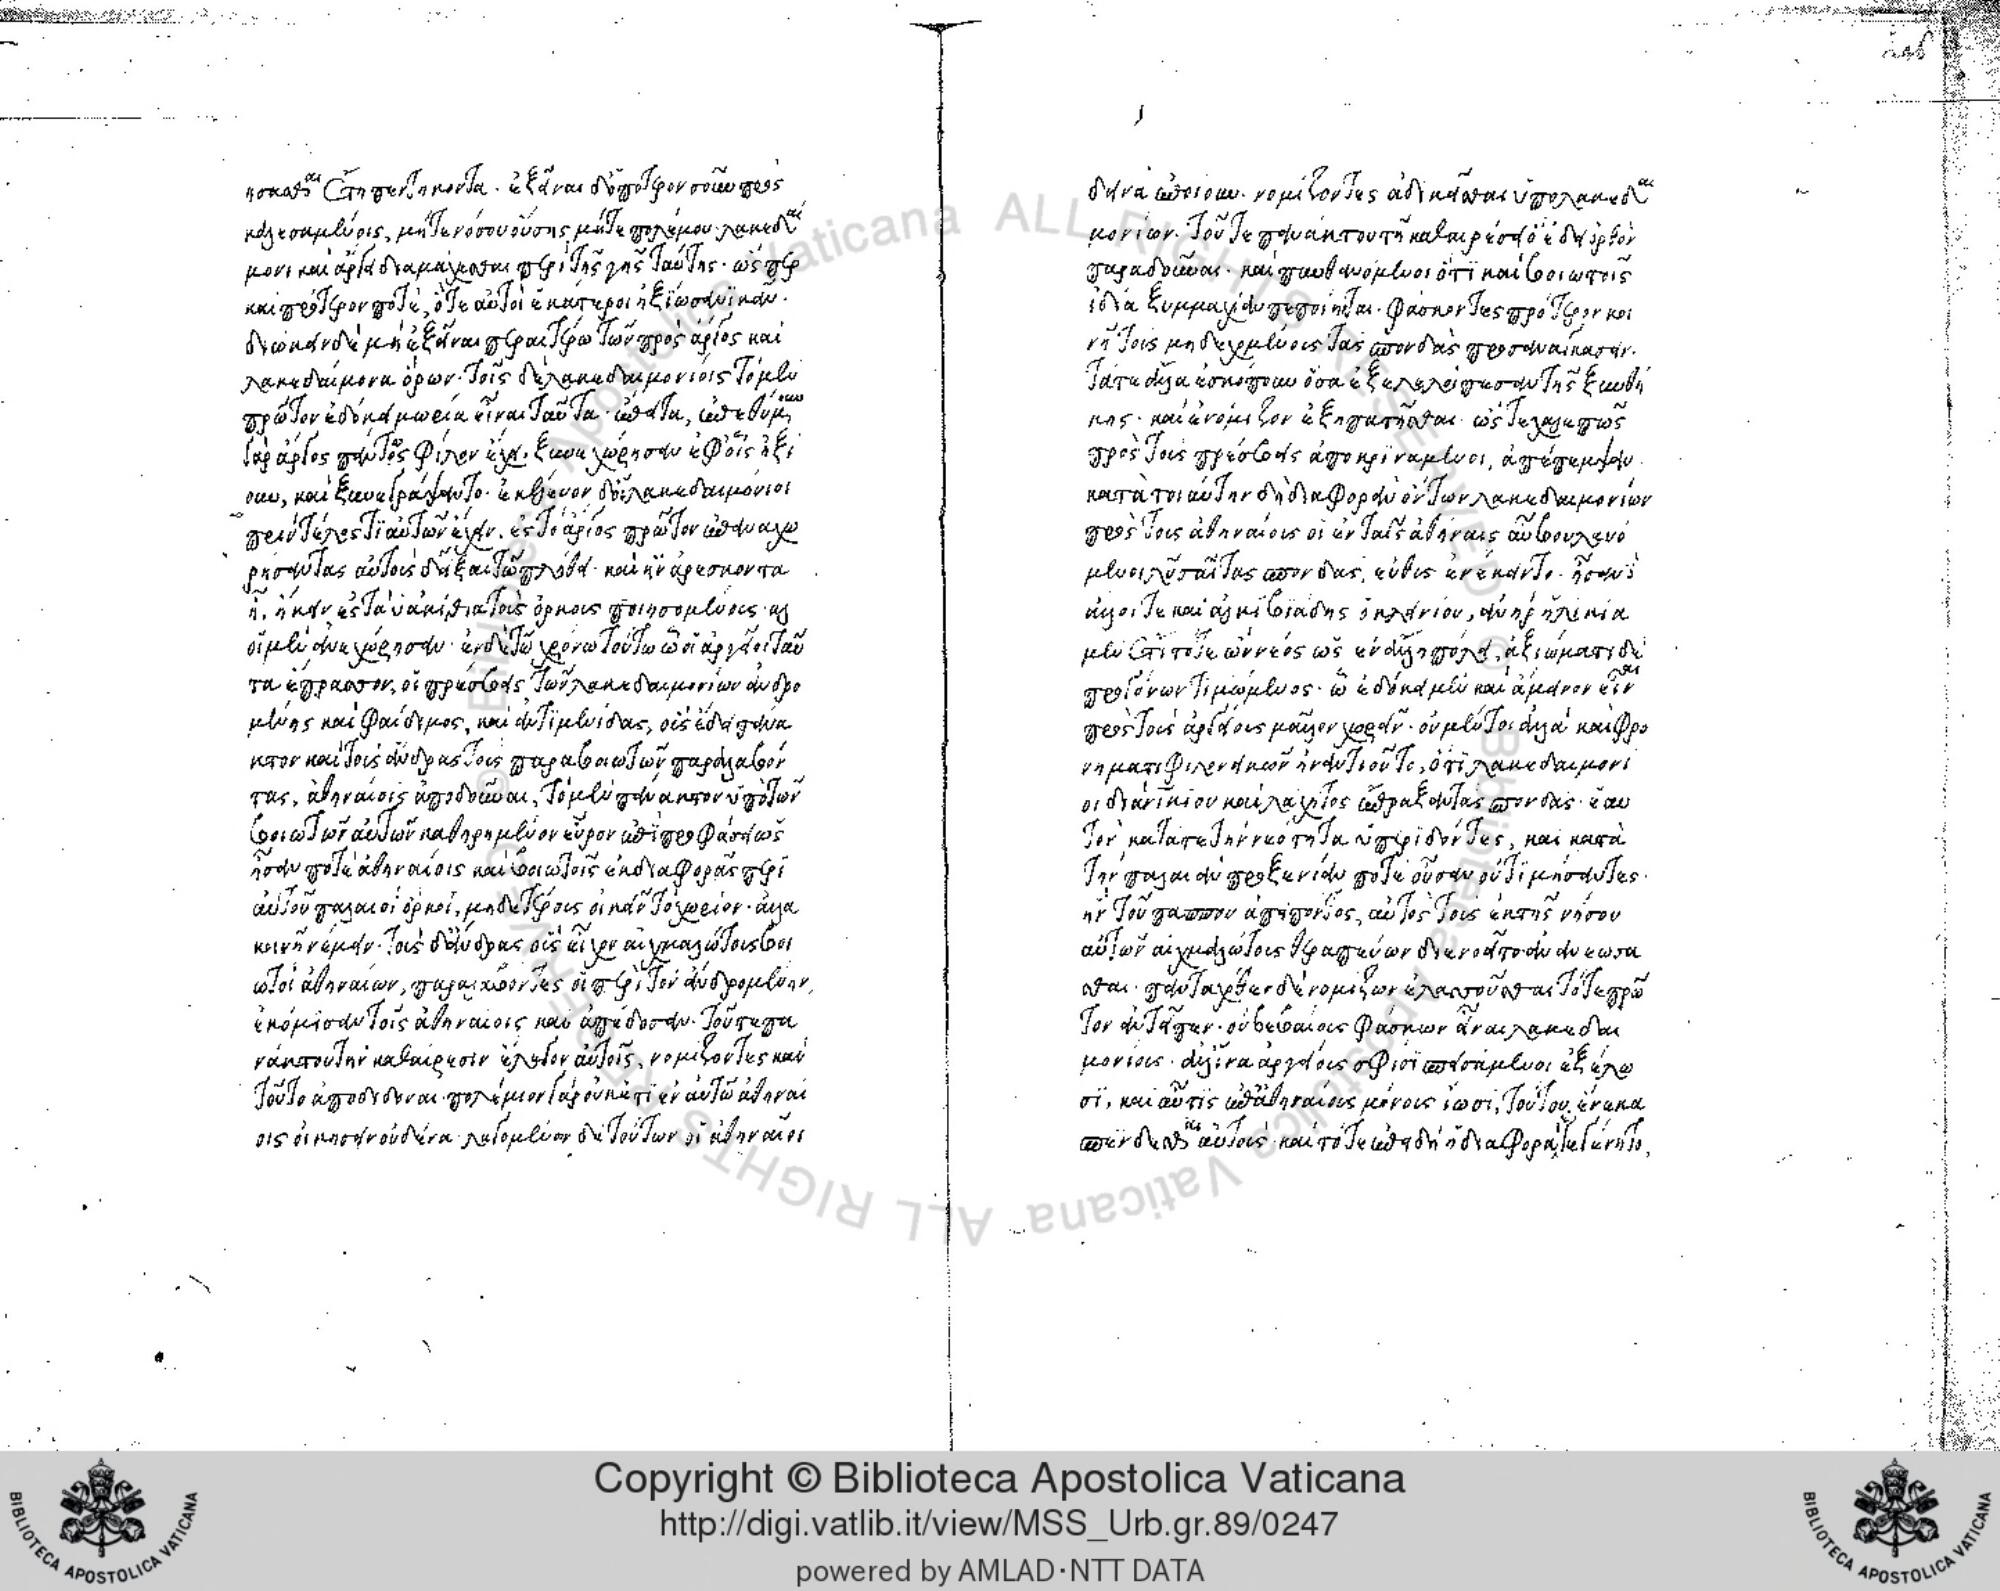 ήσασθαι ἔτη πεντήκοντα. ἐξεῖναι δ' ὁποτερονοσοῦν προσ
καλεσαμένοις, μήτε νόσου οὔσης μήτε πολέμου λακεδαι
μονι καὶ ἄργει διαμάχεσθαι περὶ τῆς γῆς ταύτης. ὥσπερ
καὶ πρότερον ποτὲ, ὅτε αὐτοὶ ἑκάτεροι ἠξίωσαν νικᾶν.
διώκειν δὲ μὴ ἐξεῖναι περαιτέρω τῶν πρὸς ἄργος καὶ
λακεδαίμονα ὅρων. τοῖς δὲ λακεδαιμονίοις τὸ μὲν
πρῶτον ἐδόκει μωρία εἶναι ταῦτα. ἔπειτα, ἐπεθύμουν
γὰρ ἄργος πάντως φίλιον ἔχειν. ξυνεχώρησαν ἐφ' οἷς ἠξί
ουν, καὶ ξυνεγράψαντο. ἐκέλευον δ' οἱ λακεδαιμόνιοι
πρὶν τέλος τι αὐτῶν ἔχειν. ἐς τὸ ἄργος πρῶτον ἐπαναχω
ρήσαντας αὐτοὺς δεῖξαι τῷ πλήθει. καὶ ἢν ἀρέσκοντα
ᾖ, ἥκειν ἐς τὰ ὑακίνθια τοὺς ὅρκους ποιησομένους. καὶ
οἱ μὲν ἀνεχώρησαν. ἐν δὲ τῷ χρόνω τούτω ὧ οἱ ἀργεῖοι ταῦ
τα ἔπρασσον, οἱ πρέσβεις τῶν λακεδαιμονίων ἀνδρο
μένης καὶ φαίδιμος, καὶ ἀντιμενίδας, οὓς ἔδει πάνα
κτον καὶ τοὺς ἄνδρας τοὺς παρὰ βοιωτῶν παραλαβόν
τας, ἀθηναίοις ἀποδοῦναι, τὸ μὲν πάνακτον ὑπὸ τῶν
βοιωτῶν αὐτῶν καθηρημένον εὗρον ἐπὶ προφάσεως
ἦσαν ποτὲ ἀθηναίοις καὶ βοιωτοῖς ἐκ διαφορᾶς περὶ
αὐτοῦ παλαιοὶ ὅρκοι, μηδετέρους οἰκεῖν τὸ χωρίον. ἀλλὰ
κοινῆ νέμειν. τοὺς δ' ἄνδρας οὓς εἶχον αἰχμαλώτους βοι
ωτοὶ ἀθηναίων, παραλαβόντες οἱ περὶ τὸν ἀνδρομένην,
ἐκόμισαν τοῖς ἀθηναίοις καὶ ἀπέδοσαν. τοῦ τε πα
νάκτου τὴν καθαίρεσιν ἔλεγον αὐτοῖς, νομίζοντες καὶ
τοῦτο ἀποδιδόναι. πολέμιον γὰρ οὐκέτι ἐν αὐτῶ ἀθηναί
οις οἰκήσειν οὐδένα. λεγομένων δὲ τούτων οἱ ἀθηναῖοι
δεινὰ ἐποίουν. νομίζοντες ἀδικεῖσθαι ὑπὸ λακεδαι
μονίων. τοῦ τε πανάκτου τῆ καθαιρέσει ὃ ἔδει ὀρθὸν
παραδοῦναι. καὶ πυνθανόμενοι ὅτι καὶ βοιωτοῖς
ἰδίᾳ ξυμμαχίαν πεποίηνται. φάσκοντες πρότερον κοι
νῆ τοὺς μὴ δεχομένους τὰς σπονδὰς προσαναγκάσειν.
τά τε ἄλλα ἐσκόπουν ὅσα ἐξελελοίπεσαν τῆς ξυνθή
κης. καὶ ἐνόμιζον ἐξηπατῆσθαι. ὥστε χαλεπῶς
πρὸς τοὺς πρέσβεις ἀποκρινάμενοι, ἀπέπεμψαν.
κατὰ τοιαύτην δὴ διαφορὰν ὄντων λακεδαιμονίων
πρὸς τοὺς ἀθηναίους οἱ ἐν ταῖς ἀθήναις αὖ βουλευό
μενοι λῦσαι τὰς σπονδὰς, εὐθὺς ἐνέκειντο. ἦσαν δὲ
ἄλλοι τε καὶ ἀλκιβιάδης ὁ κλεινίου, ἀνὴρ ἡλικία
μὲν ἔτι τότε ὢν νέος ὡς ἐν ἄλλη πόλει, ἀξιώματι δὲ
προγόνων τιμώμενος. ὧ ἐδόκει μὲν καὶ ἄμεινον εἶναι
πρὸς τοὺς ἀργείους μᾶλλον χωρεῖν. οὐ μέντοι ἀλλὰ καὶ φρο
νήματι φιλονεικῶν ἠναντιοῦτο, ὅτι λακεδαιμόνι
οι διὰ νικίου καὶ λάχητος ἔπραξαν τὰς σπονδὰς. ἑαυ
τὸν κατά τε τὴν νεότητα ὑπεριδόντες, καὶ κατὰ
τὴν παλαιὰν προξενίαν ποτὲ οὖσαν οὐ τιμήσαντες.
ἣν τοῦ πάππου ἀπειπόντος, αὐτὸς τοὺς ἐκ τῆς νήσου
αὐτῶν αἰχμαλώτους θεραπεύων διενοεῖτο ἀνανεώσα
σθαι. πανταχόθεν δὲ νομίζων ἐλασσοῦσθαι τό τε πρῶ
τον ἀντεῖπεν. οὐ βεβαίους φάσκων εἶναι λακεδαι
μονίους. ἀλλ' ἵνα ἀργείους σφίσι σπεισάμενοι ἐξέλω
σι, καὶ αὖτις ἐπ' ἀθηναίους μόνους ἴωσι, τούτου ἕνεκα
σπένδεσθαι αὐτοὺς. καὶ τότε ἐπειδὴ ἡ διαφορὰ ἐγεγένητο,